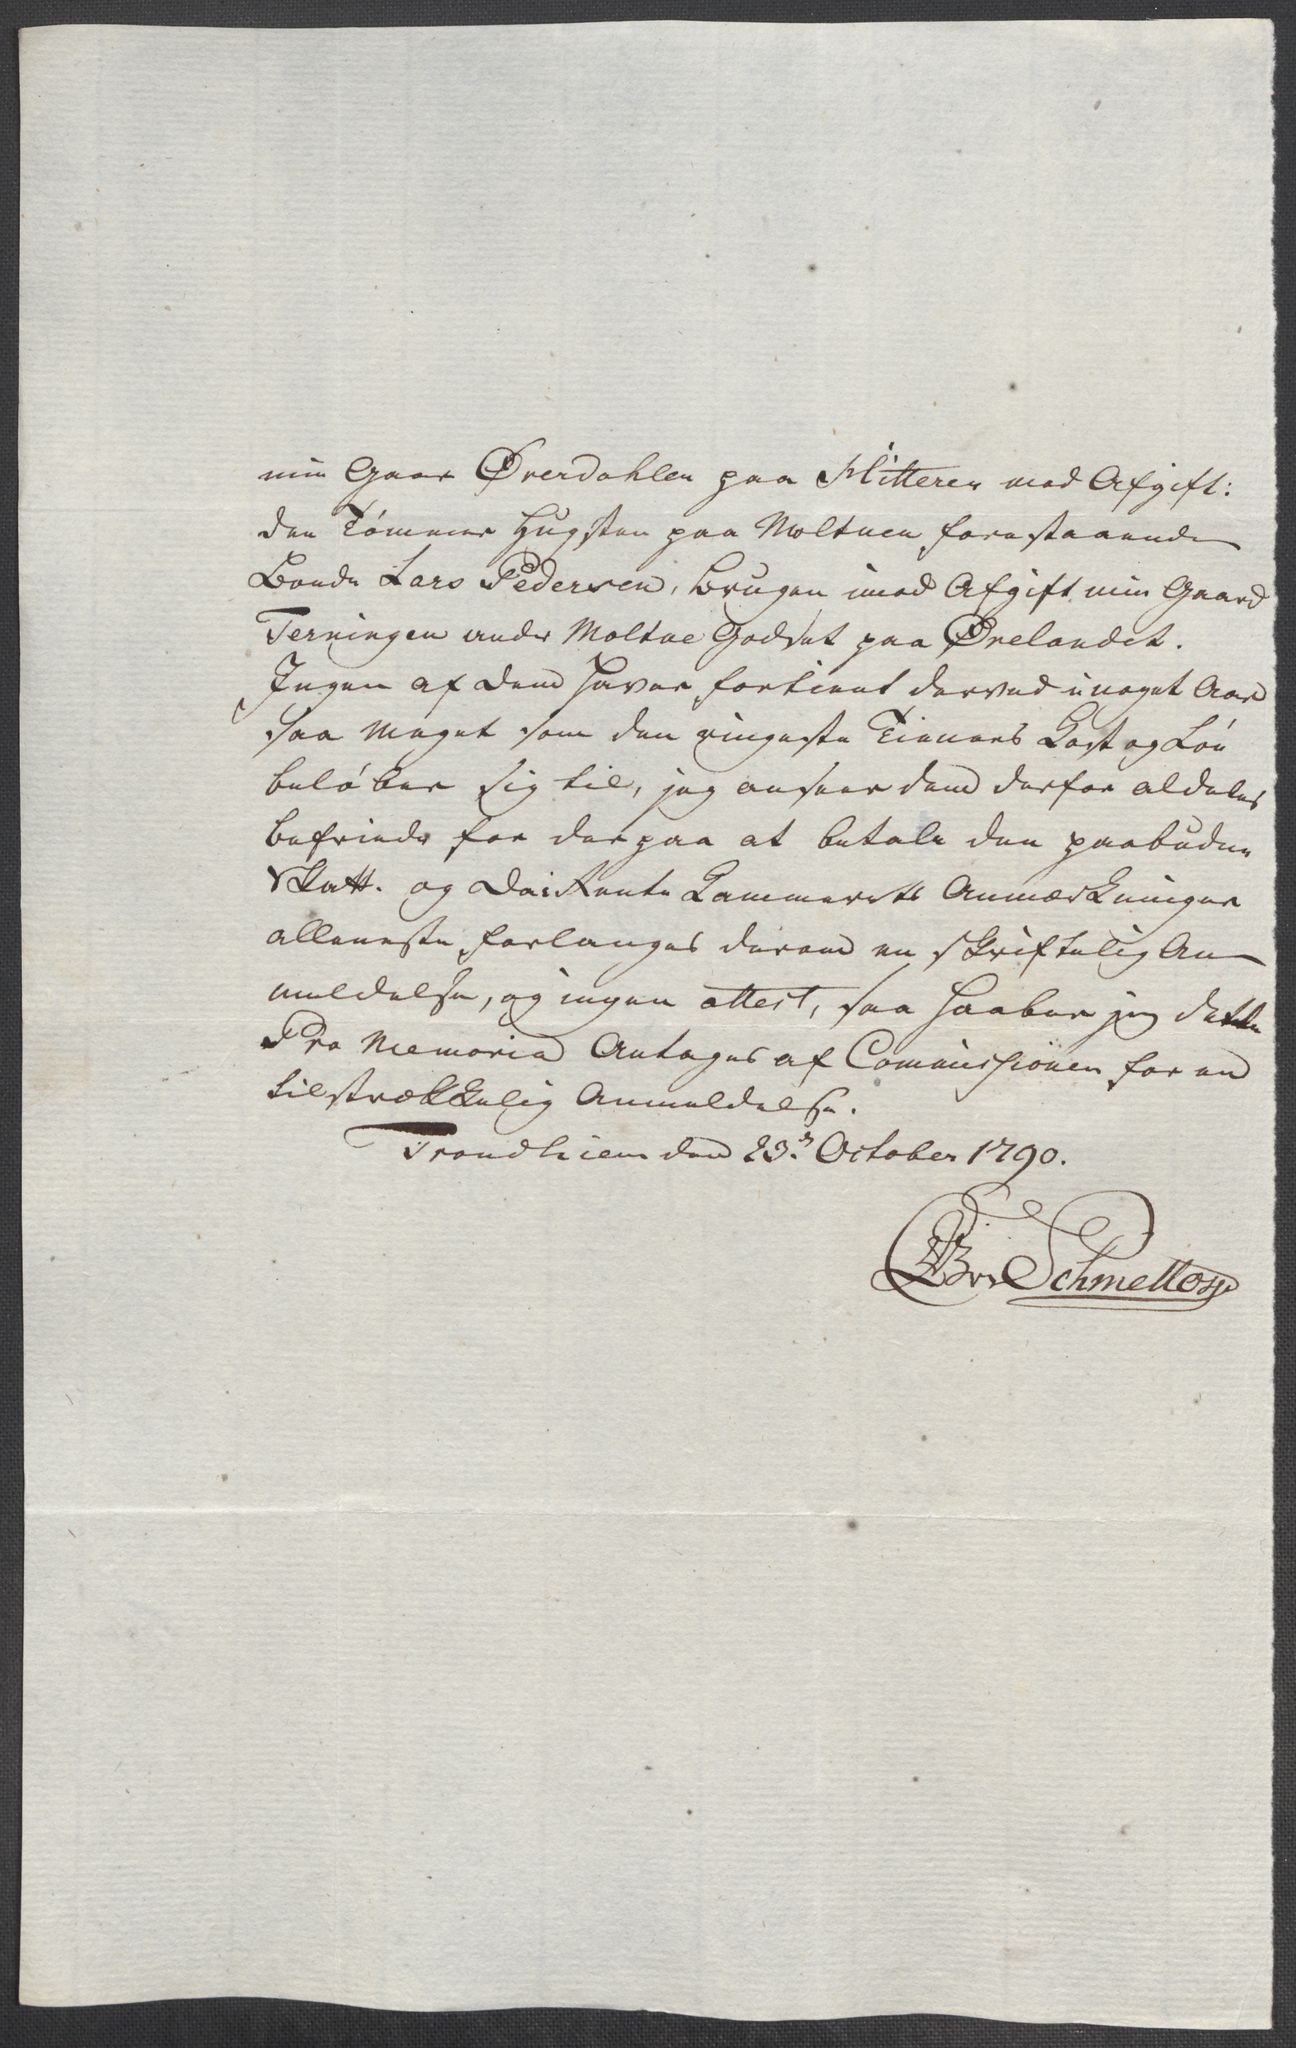 min Gaar Øverdahlen paa Hitteren mod Afgift:
den Tømmer Hugsten paa Moltuen forestaaende
Bonde Lars Pedersen, bruger imod Afgift min Gaard
Terningen under Moltue Godset paa Ørelandet.
Ingen af dem haver fortient derved i noget Aar
saa meget som den ringeste Tieners Kost og Løn
beløber sig til, jeg anseer dem derfor aldeles
befriede for derpaa at betale den paabudne
Skatt. og da Rente Kammerets Anmærkninger
alleneste forlanges derom en skriftelig An-
meldelse, og ingen attest, saa haaber jeg dette
Pro Memoria Antages af Commissionen for en
tilstrækkelig Anmeldelse.
Trondhiem den 23. October 1790.
Schmettow